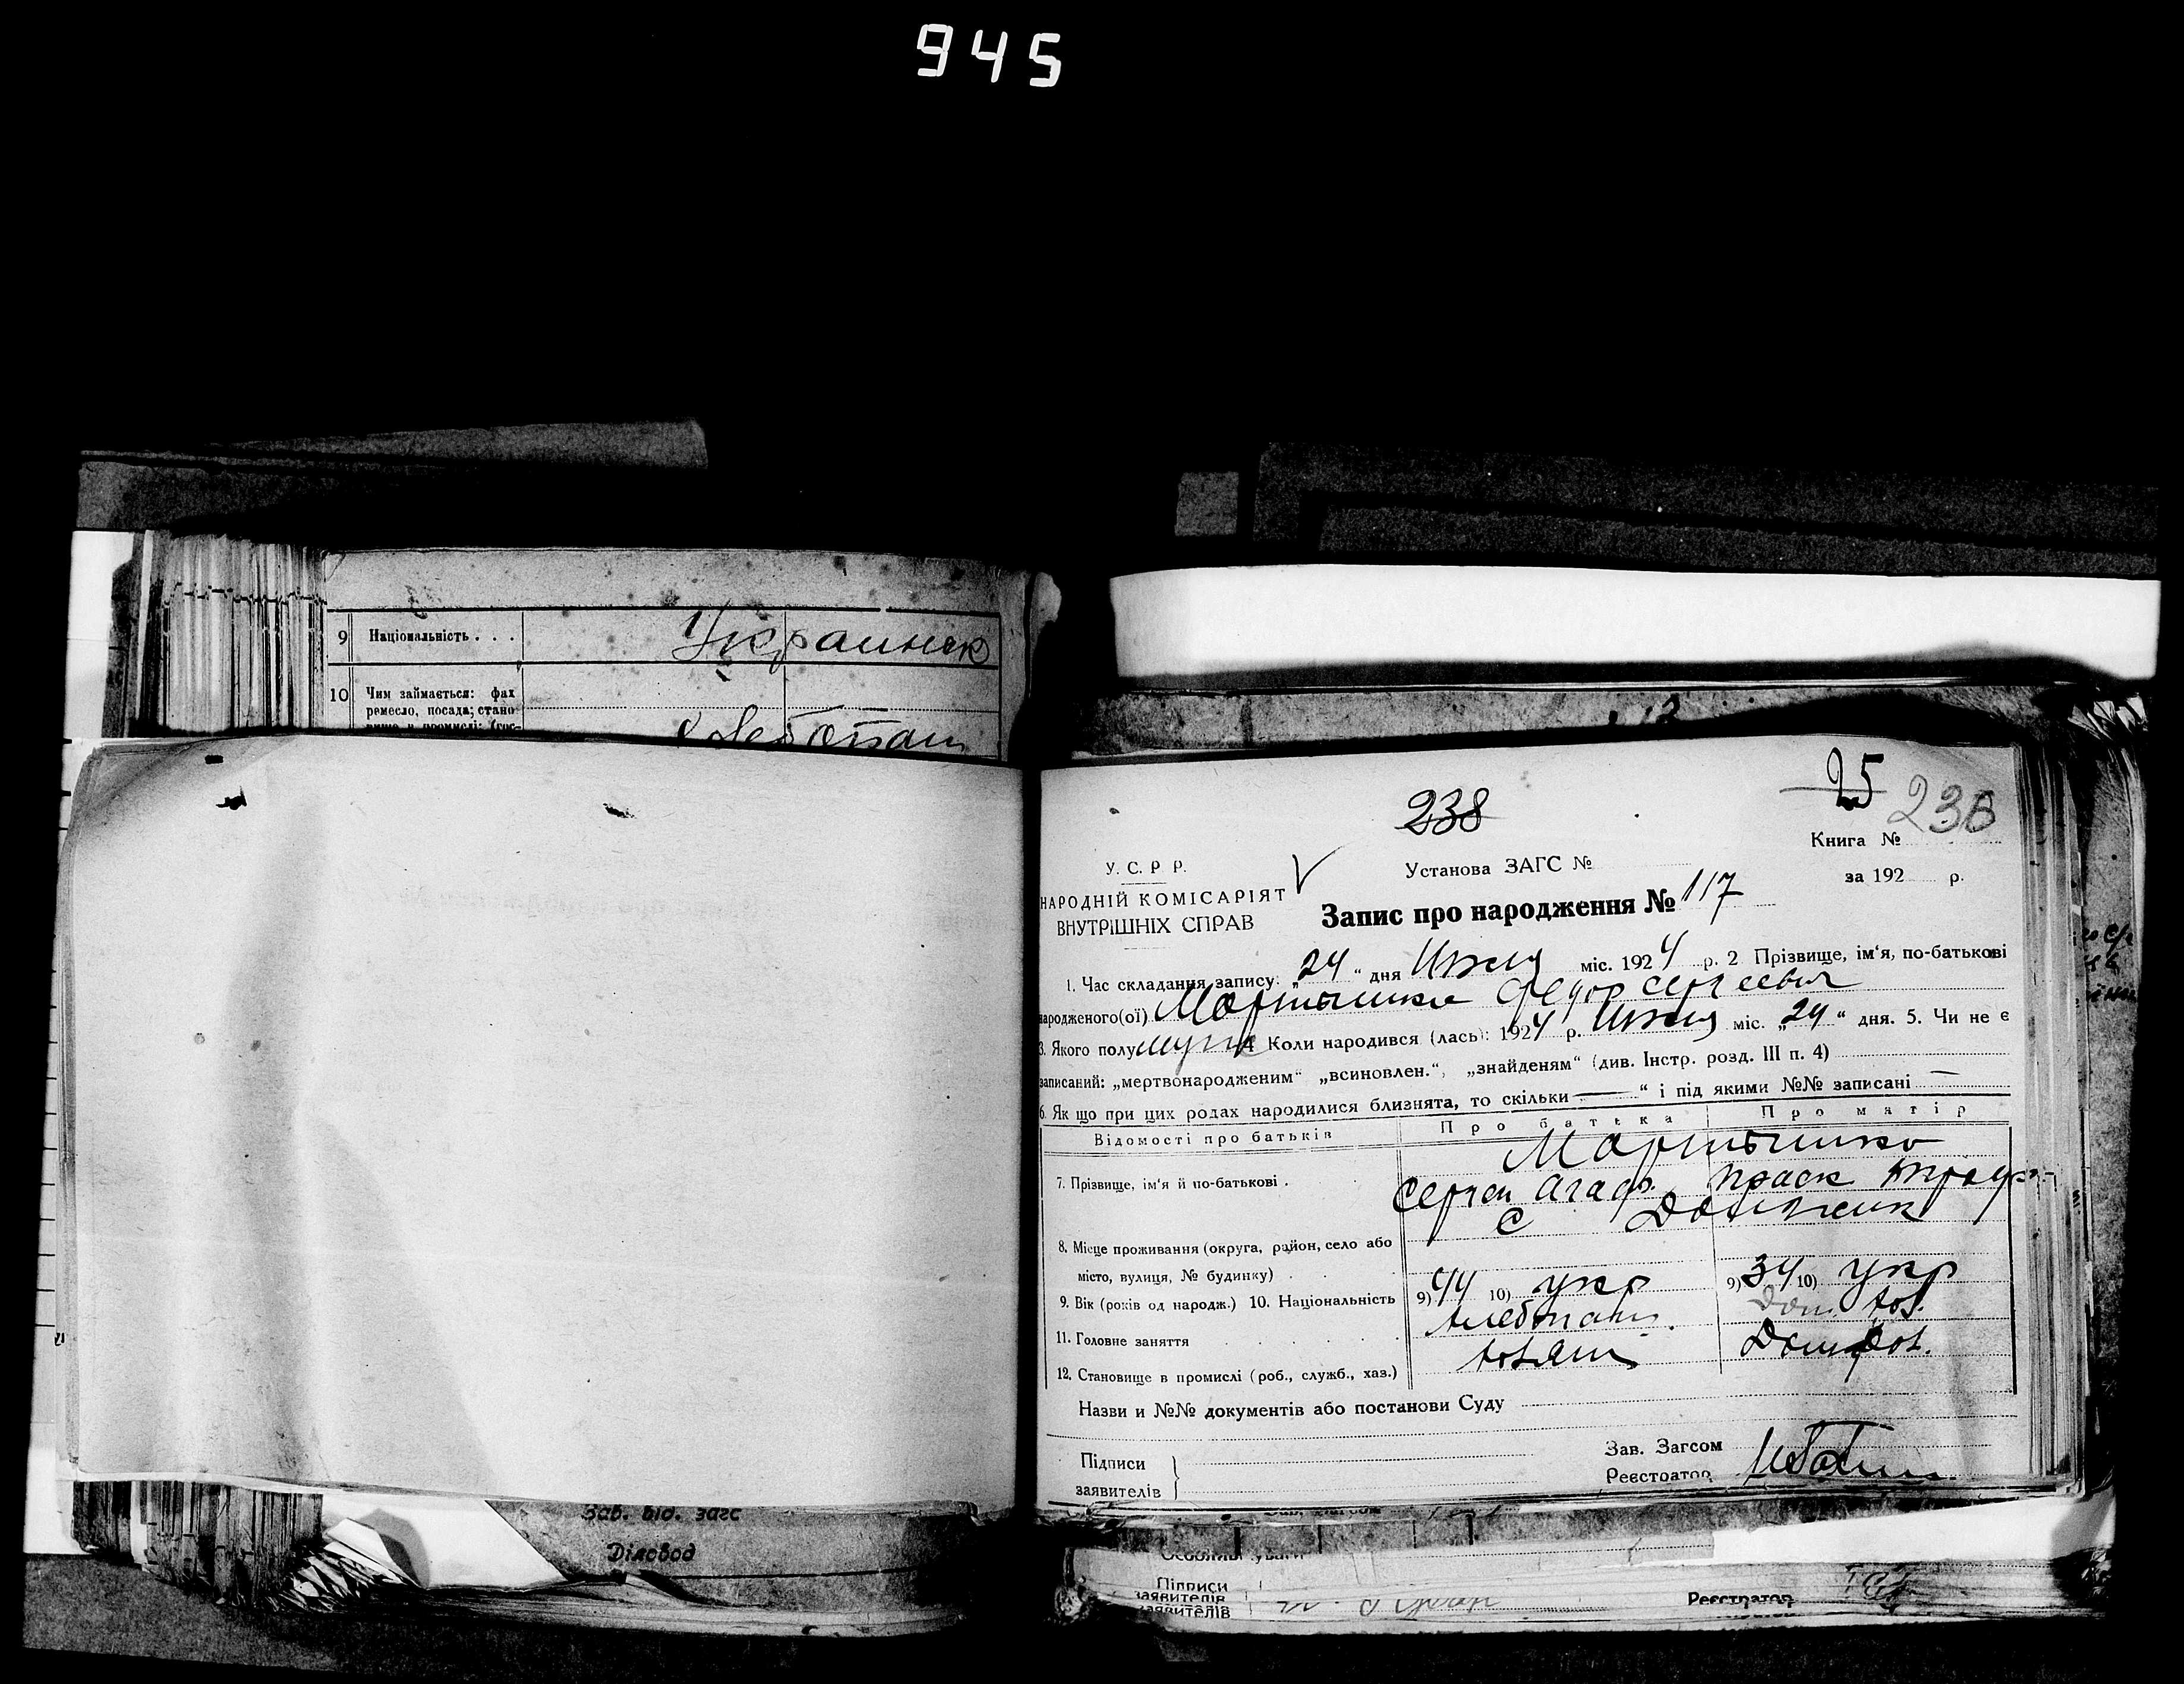 945
9 Національність . . . Украинск
10 Чим займається: фах
ремесло, посада; стано-
Хлебопаш
25
238
236
Книга №
У. С. Р Р.
Установа ЗАГС №
за 192 р.
НАРОДНІЙ КОМІСАРІЯТ
ВНУТРІШНІХ СПРАВ
Запис про народження № 117
1. Час складання запису: „24“ дня Июля міс. 1924 р. 2 Прізвище, ім'я, по-батькові
народженого(ої) Мартышко Федор Сергеевич
3. Якого полу муж 4 Коли народився (лась): 1924 р. Июля міс. „24“ дня. 5. Чи не є
записаний: „мертвонародженим“ „всиновлен.“, „знайденям“ (див. Інстр. розд. III п. 4)
6. Як що при цих родах народилися близнята, то скільки — “ і під якими №№ записані —
Відомості про батьків Про батька Про матір
Мартышко
7. Прізвище, ім'я й по-батькові . Сергей Агаф. Праск Троф
С
8. Місце проживання (округа, район, село або
місто, вулиця, № будинку) .
9. Вік (років од народж.) 10. Національність 9) 44 10) укр 9) 34 10) укр
11. Головне заняття хлебопаш. Дом. хоз.
12. Становище в промислі (роб., служб., хаз.) хозяин Дом хоз.
Назви и №№ документів або постанови Суду
Підписи
заявителів
Зав. Загсом
Реєстратор
Зав. від. загс
Діловод
Особливі уваги
Підписи
заявителів
заявителів
Реєстратор